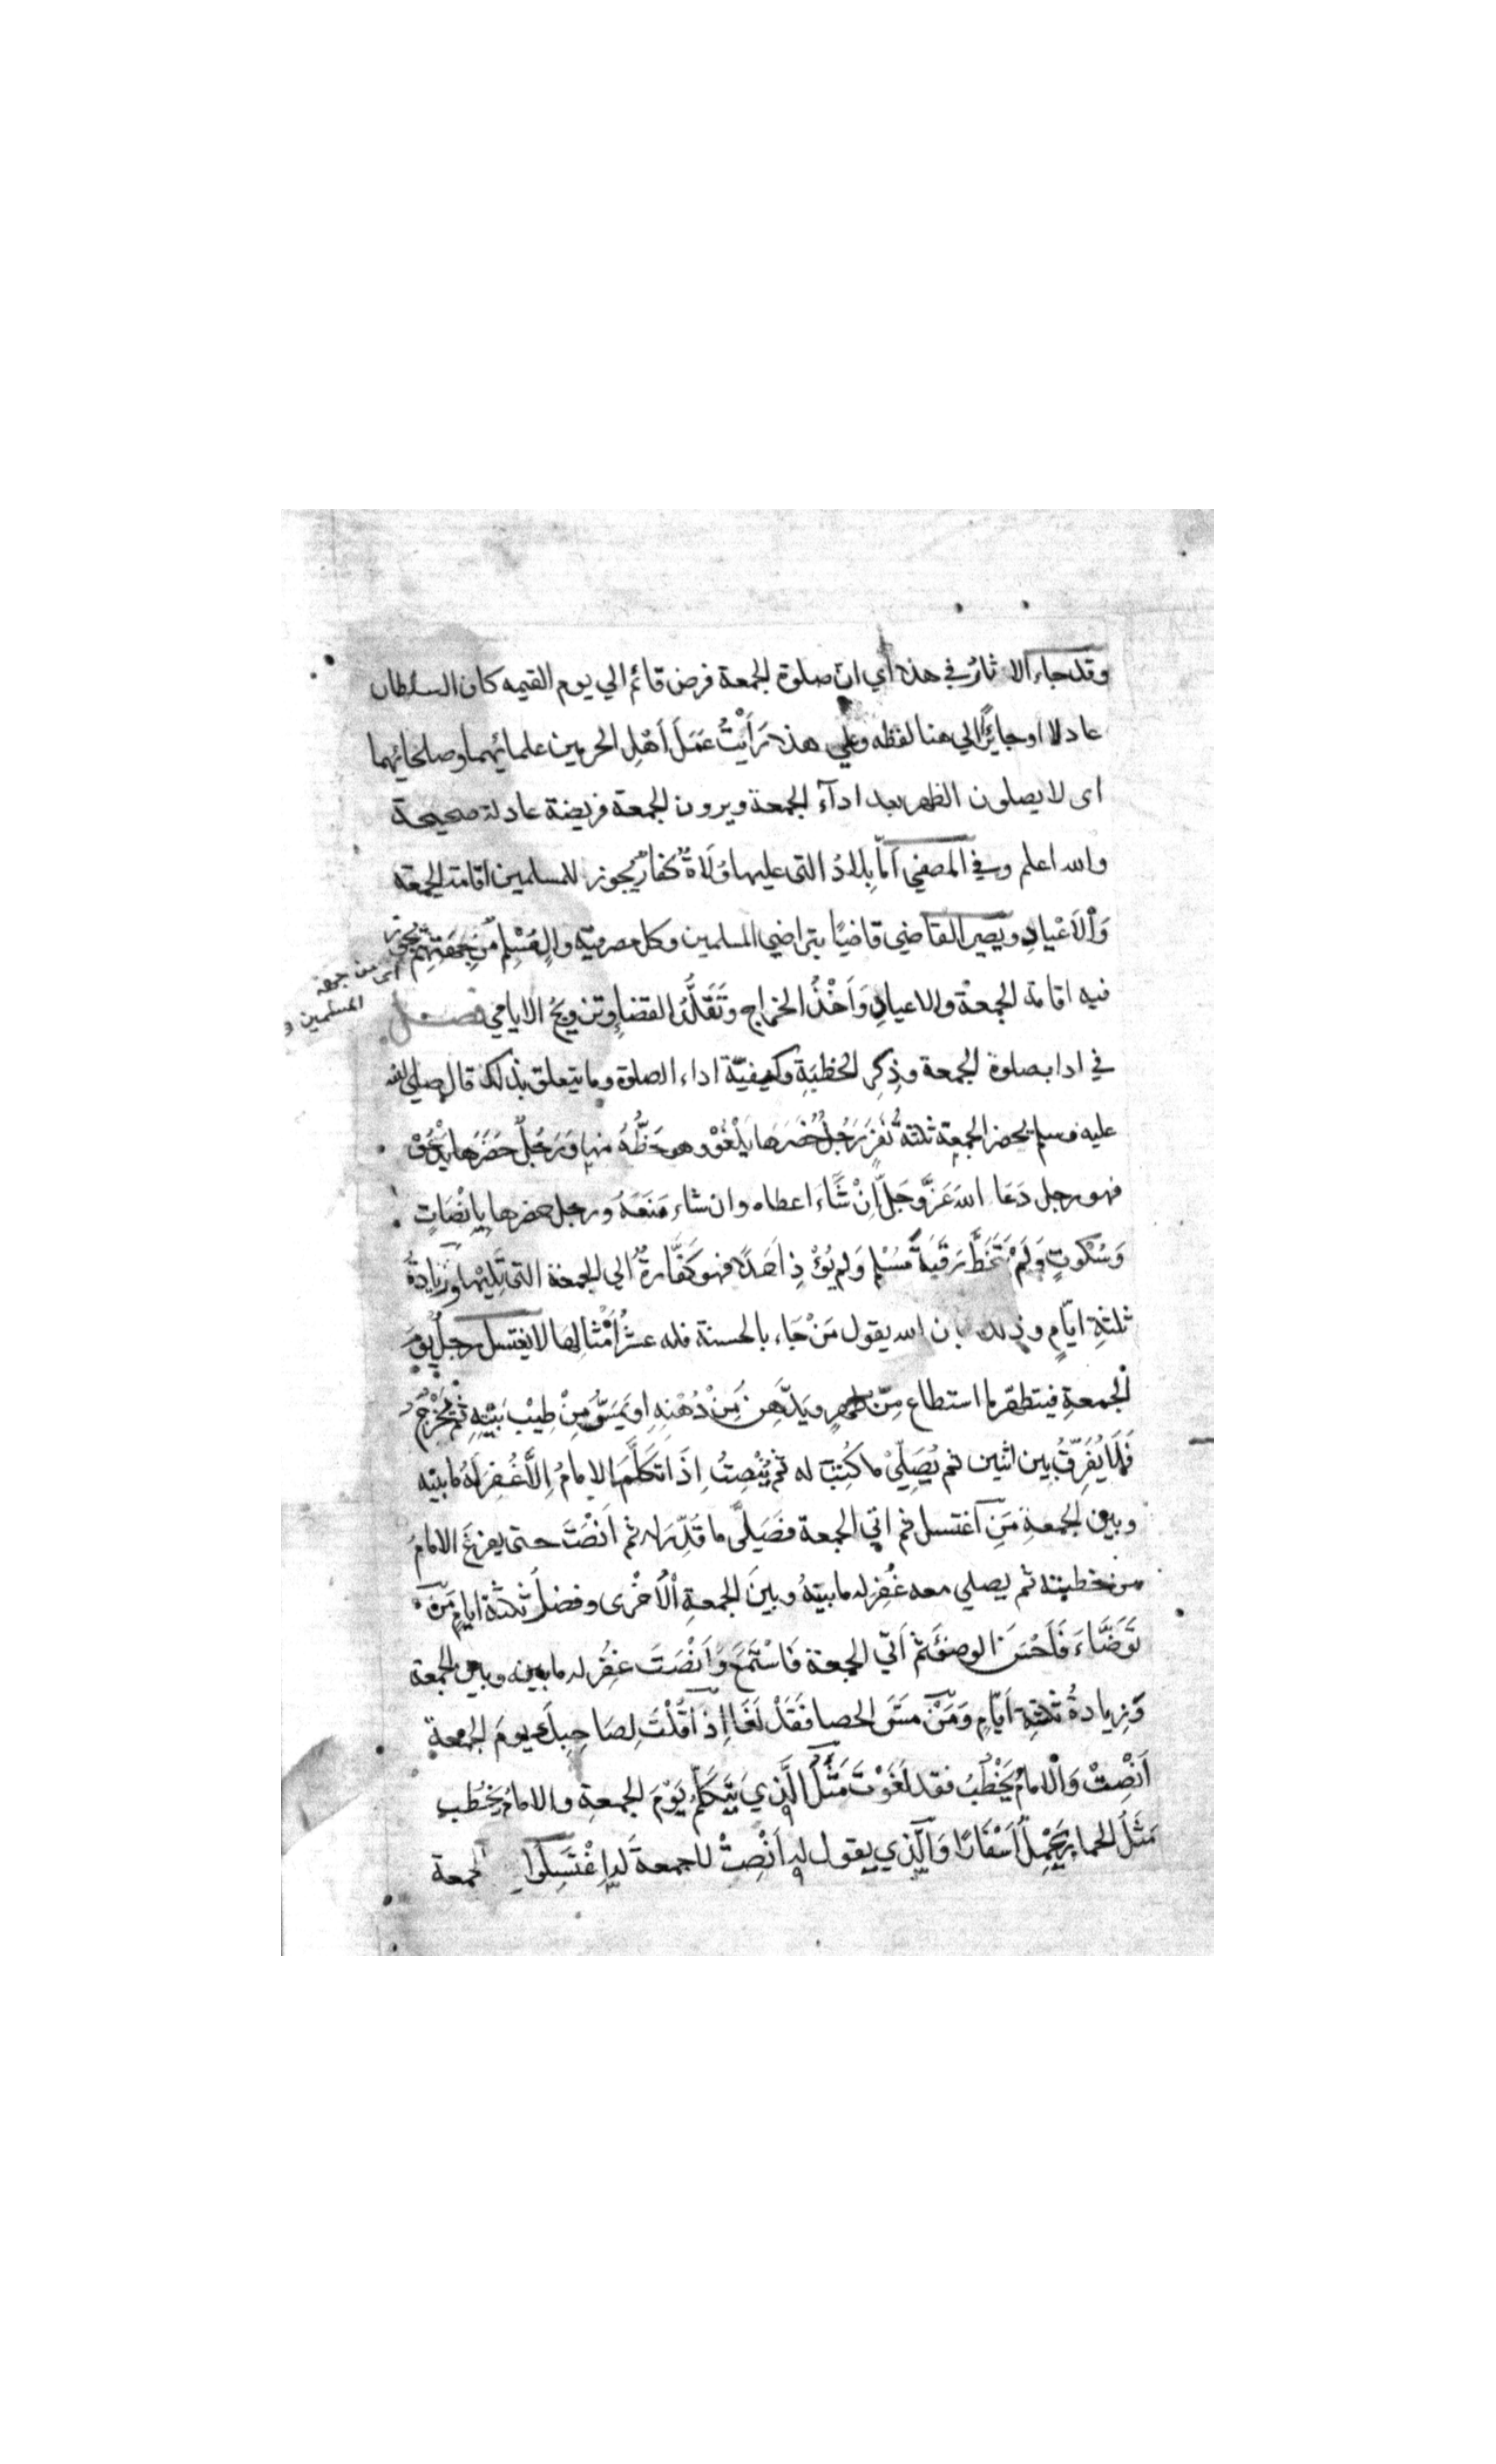 وقد جاء الاثارُ في هذا أي انّ صلوة الجمعة فرض قائم الي يوم القيمه كان السلطان
عادلا او جائرًا الي هنا لفظه وعلي هذا رَأَيْتُ عَمَلَ أَهْلِ الحرمين علمائهما وصلحائهما
اى لا يصلون الظهر بعد ادآء الجمعة ويرون الجمعة فريضة عادلة صحيحة
والله اعلم وفي المصفي اَمّا بِلَادُ التى عليها وُلَاةٌ كفارٌ يجوز للمسلمين اقامة الجمعة
وَالْاَعْيادِ ويصير القاضي قاضيًا بتراضي المسلمين وكل مصر فيه والٍ مُسْلِم مِن جهتهم يجوز
اى من جهة
المسلمين
فيه اقامة الجمعة والاعيادِ وَاَخْذُ الخراج وتَقَلُّدُ القضاءِ وتزويجُ الايامي فصل
في اداب صلوة الجمعة وذِكرِ الخطبَةِ وكيفيّة اداء الصلوة وما يتعلق بذلك قال صلي الله
عليه وسلم يحضر الجمعة ثلثةُ نَفَرٍ رَجُلٌ حَضَرَهَا يَلْغُوْ وهو حَظُّهُ منها وَرَجُلٌ حَضَرَهَا يَدْعُوْ
فهو رجل دَعَا اللهَ عَزَّ وَجَلَّ اِنْ شَاءَ اعطاه وان شاء مَنَعَهُ ورجل حضرها بِاِنْصَاتٍ
وَسُكُوتٍ وَلَمْ يَتَخَطَّ رَقَبَةَ مُسْلِمٍ وَلم يُؤْذِ اَحَدًا فهو كَفَّارةٌ الي الجمعة التى تَلِيْها وَزِيَادَةُ
ثلثةِ ايّامٍ وذلك بان الله يقول مَنْ جَاء بالحسنة فله عشرُ أَمْثَالِهَا لا يغتسل رجلٌ يومَ
الجمعةِ فيتطهر ما استطاع مِنْ طهرٍ ويَدَّهِنُ مِنْ دُهْنِهِ او يَمَسُّ مِنْ طِيْبِ بَيْتِهِ ثم يَخْرُجُ
فَلَا يُفَرِّقُ بين اثنين ثم يُصَلِّيْ ما كُتِبَ له ثم يُنْصِتُ اِذَا تَكَلَّمَ الامامُ اِلَّا غُفِرَ لَهُ ما بينه
وبين الجمعةِ مَنِ اَغتسل ثم اتي الجمعة فَصَلَّى ما قُدِّرَ له ثم اَنْصَتَ حتى يفرغَ الامامُ
من خطبته ثم يصلي معه غُفِرَ له ما بينهُ وبينَ الجمعةِ الْاُخْرى وفضلُ ثلثة ايامٍ مَنْ
تَوَضَّاءَ فَاَحْسَنَ الوضوءَ ثم اَتَى الجمعة فَاسْتَمَعَ وَاَنْصَتَ غفِرَ له ما بينه وبين الجمعة
وَزِيادةُ ثلثةِ اَيّامٍ وَمَنْ مَسَّ الحصا فَقَدْ لَغَا اِذَا قُلْتَ لِصَاحِبِكَ يومَ الجمعة
اَنْصِتْ وَالْامامُ يَخْطُبُ فقد لَغَوْتَ مَثَلُ الَّذِي يَتَكَلَّمُ يَوْمَ الجمعةِ والامامُ يَخْطُبُ
مَثَلُ الحمارِ يَحْمِلُ اَسْفَارًا وَالَّذِي يقول له اَنْصِتْ لا جمعةَ لَهُ اِغْتَسِلُوا
لجمعة